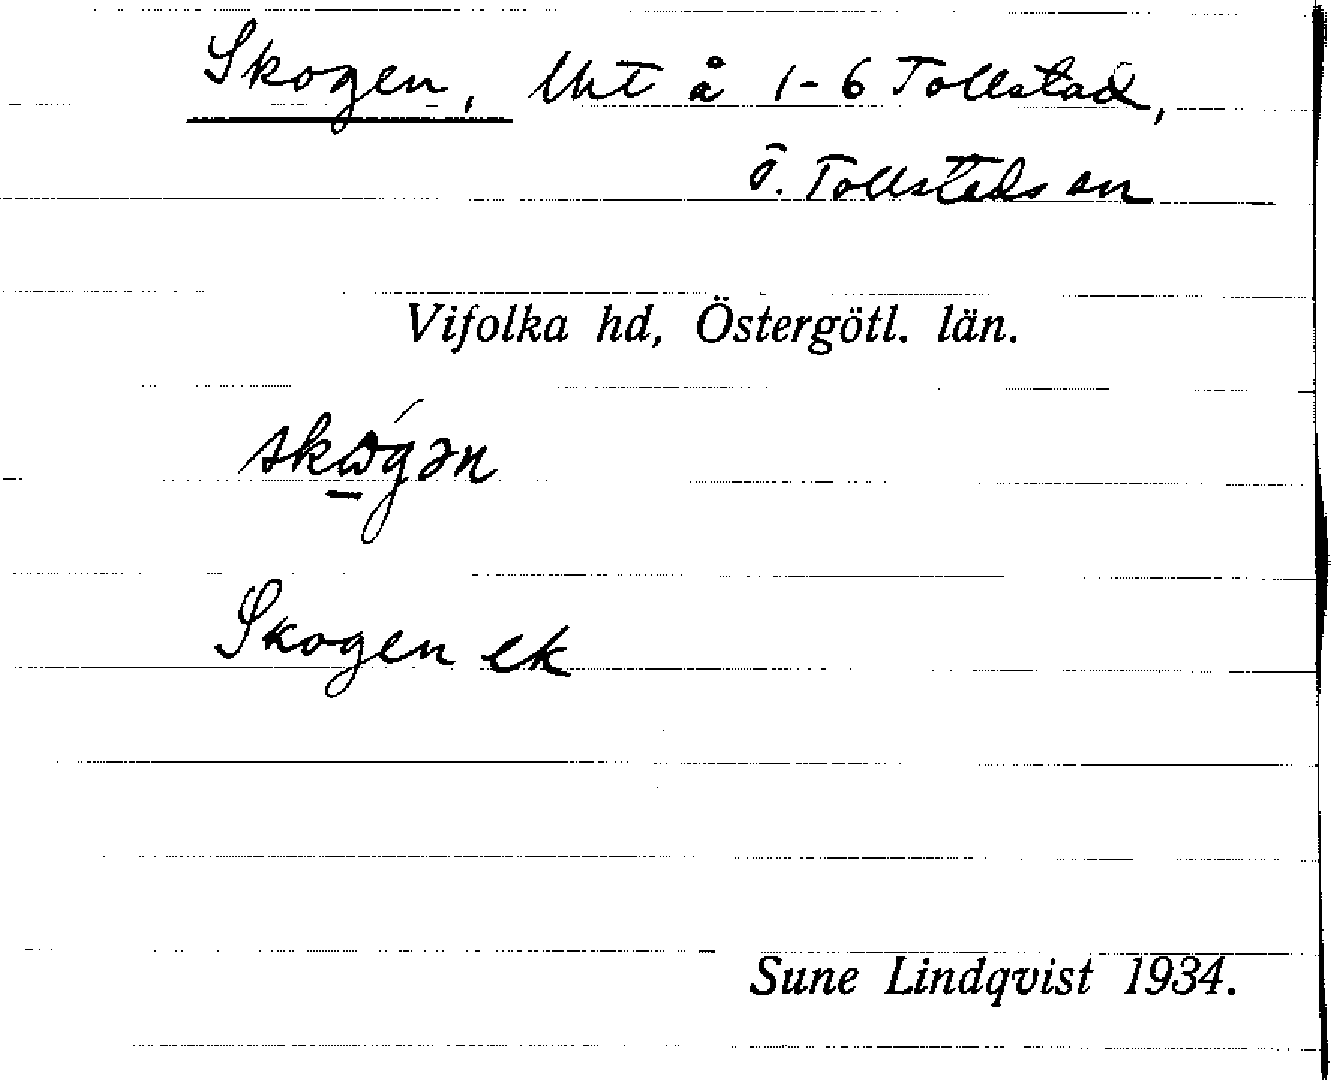 Skogen, lht å 1-6 Tollstad,
Ö. Tollstads sn
Vifolka hd, Östergötl. län.
skωǵən
Skogen ek
Sune Lindqvist 1934.